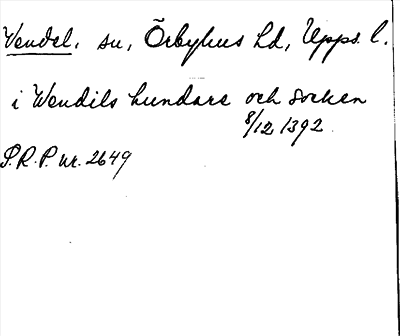 Vendel, sn, Örbyhus hd, Upps. l.
i Wendils hundare och socken
8/12 1392
P.R.P. nr. 2649